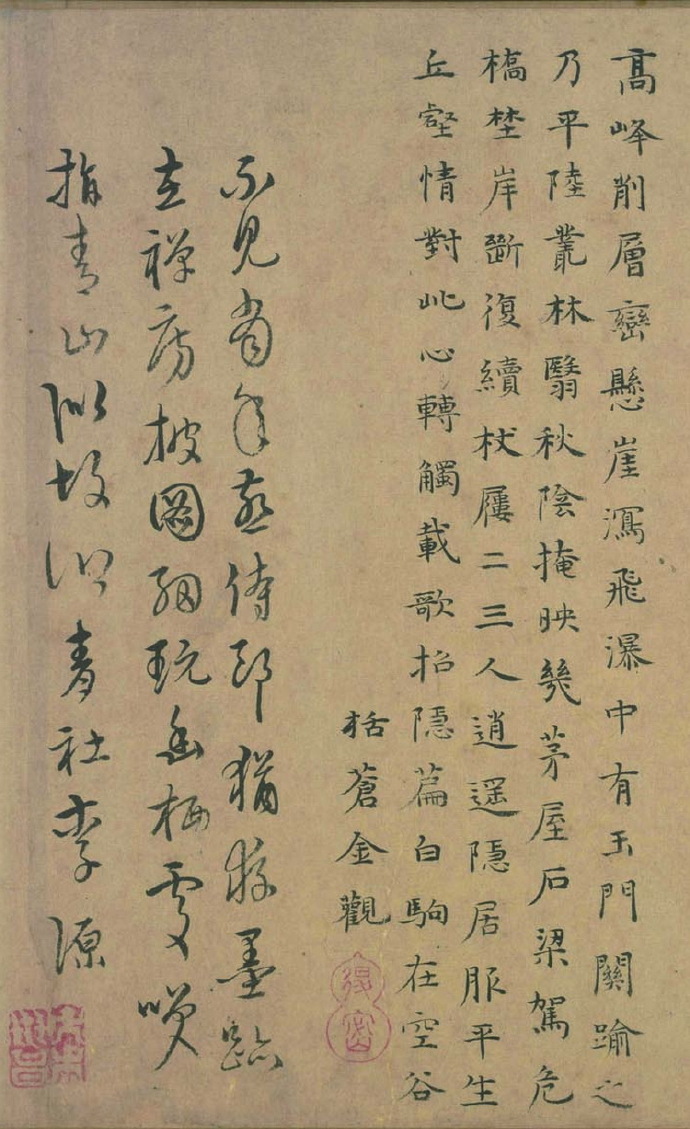 高峰削層巒懸崖瀉飛瀑中有玉門關踰之
乃平陸叢林翳秋陰掩映幾茅屋石梁駕危
橋埜岸斷復續杖屨二三人逍遥隱居服平生
丘壑情對此心轉觸載歌招隱篇白駒在空谷
括蒼金觀
不見當年燕侍郎猶墨跡
在禪房披圖細玩幽栖處笑
指青山似故鄉青社李源